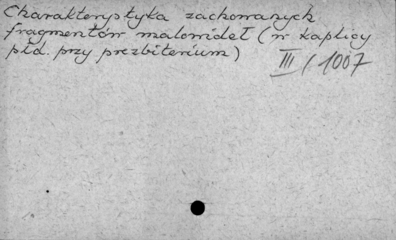 Charakterystyka zachowanych
fragmentów malowideł (w kaplicy
płd. przy prezbiterium)
III / 1007